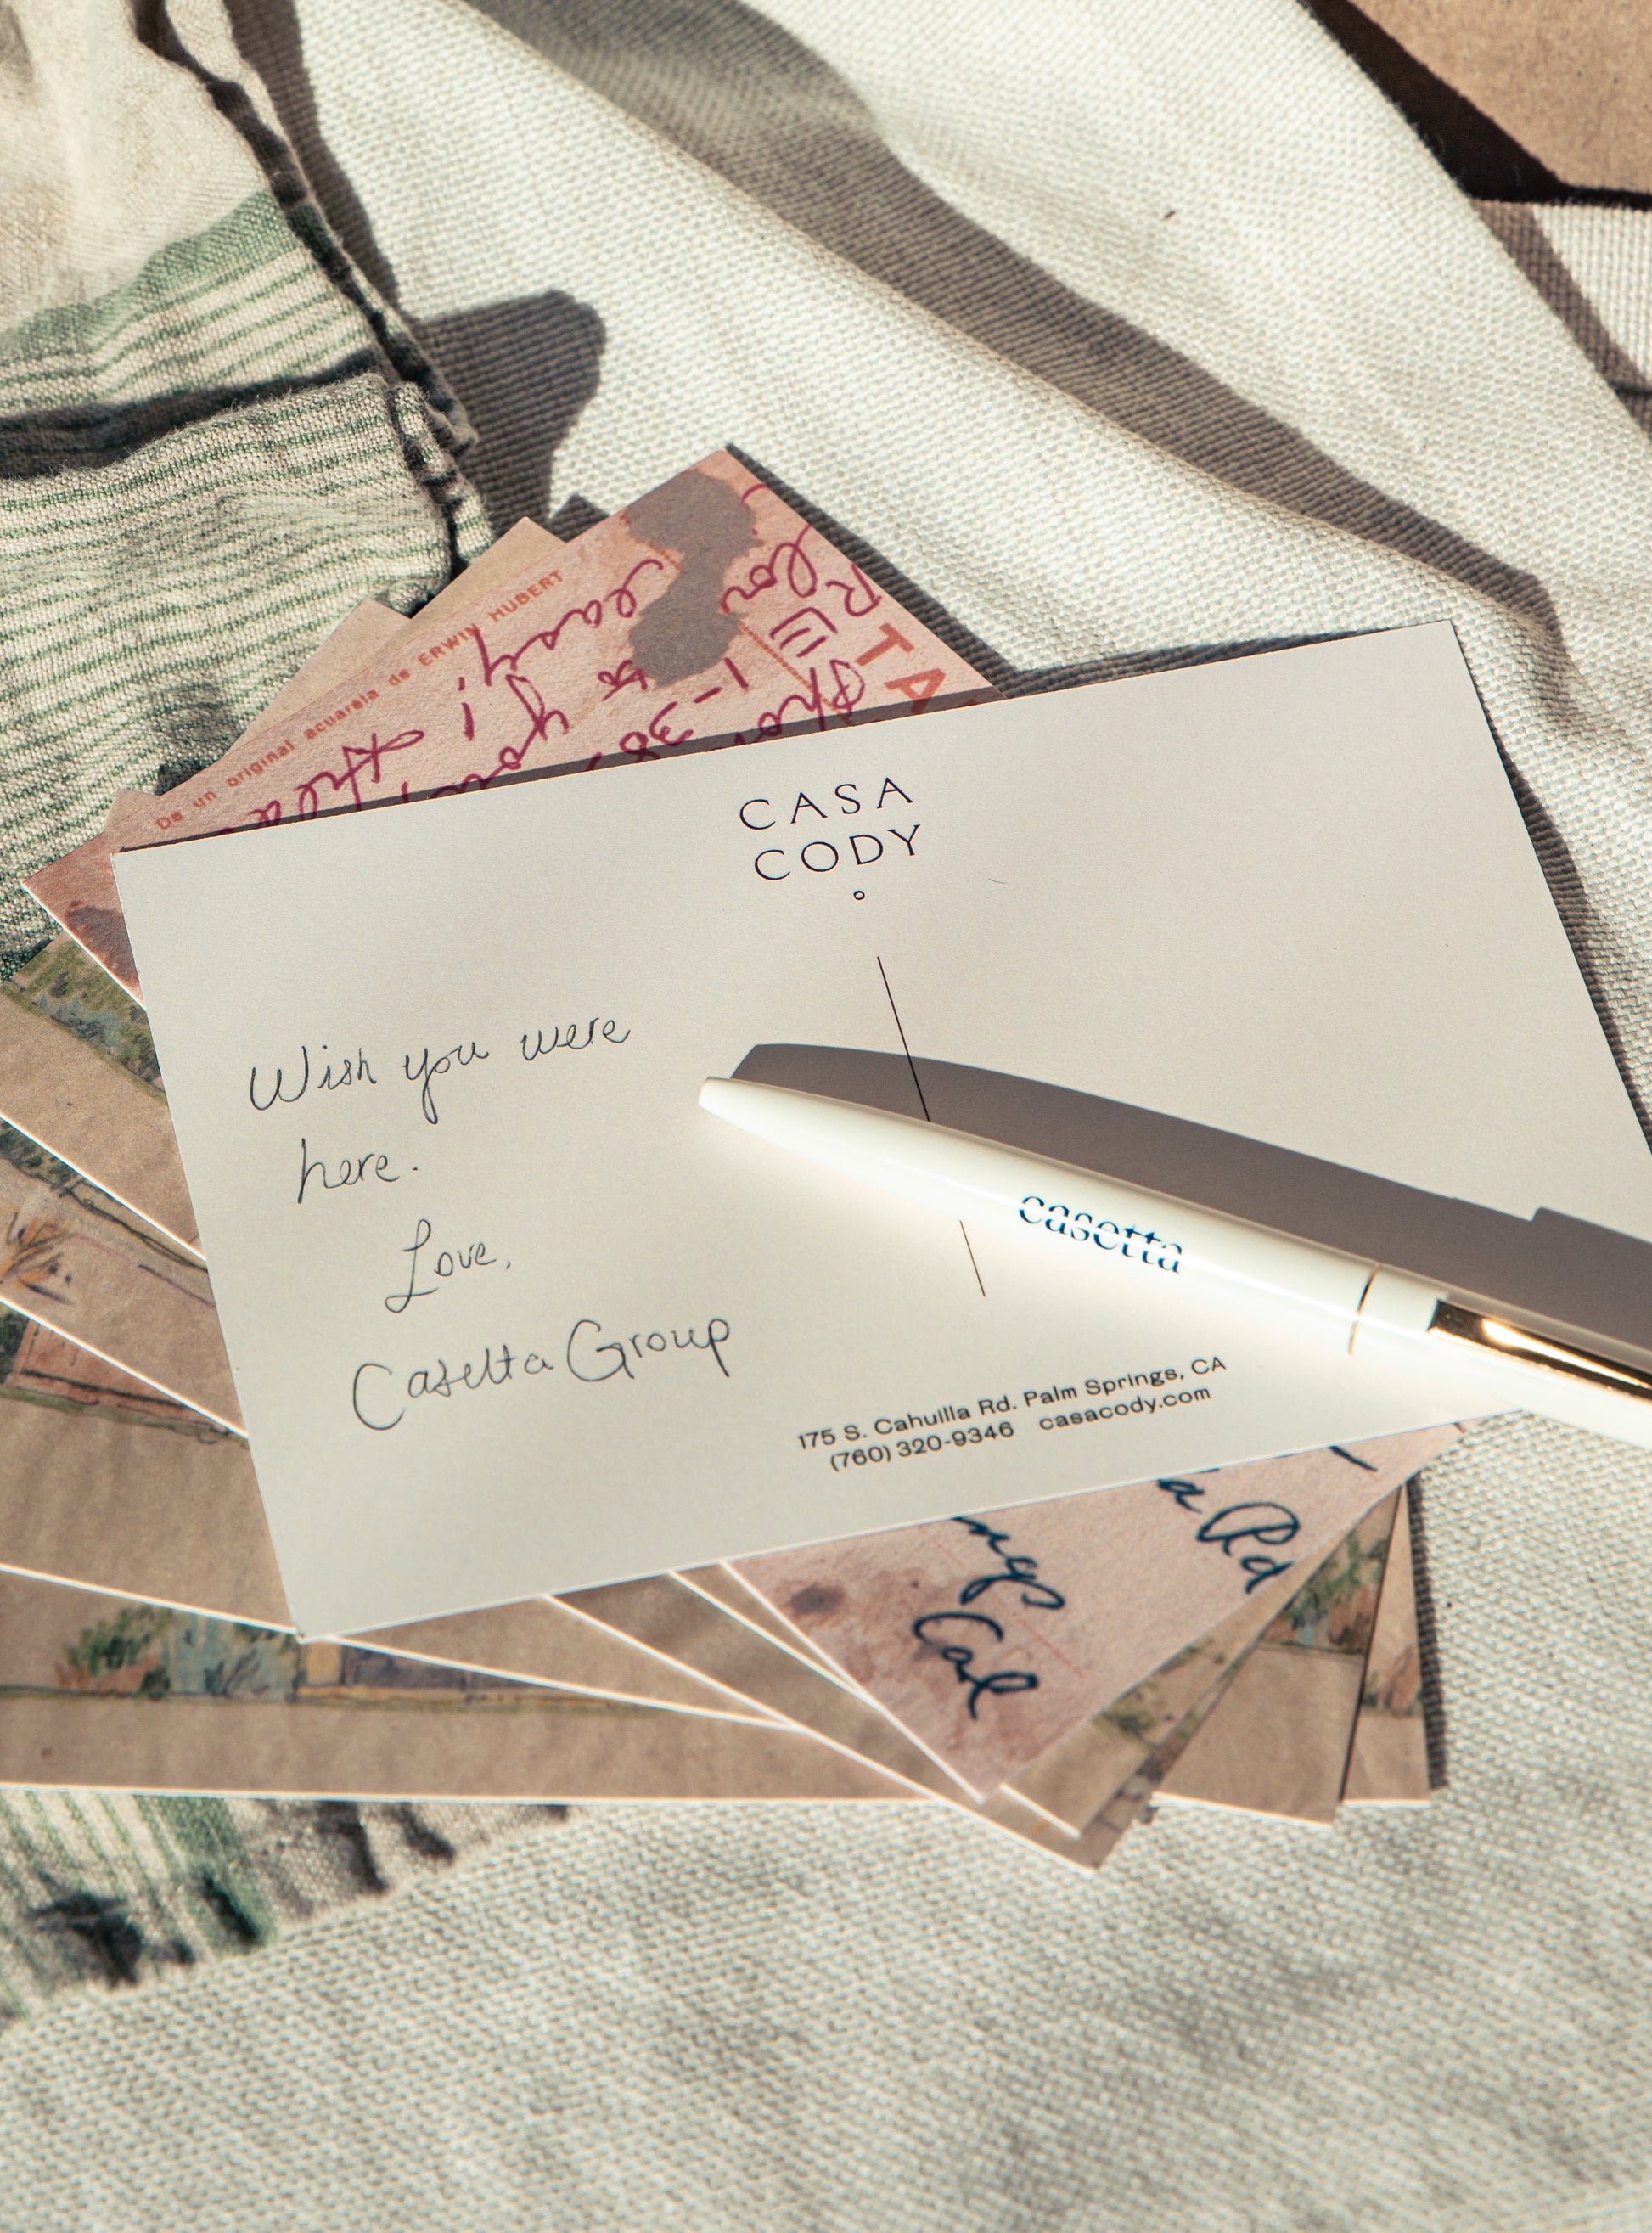 De un original acuarela de ERWIN HUBERT
easy,
CASA
CODY
Wish you were
here.
Love,
Casetta Group
casetta
175 S. Cahuilla Rd. Palm Springs, CA
(760) 320-9346 casacody.com
Rd
Cal